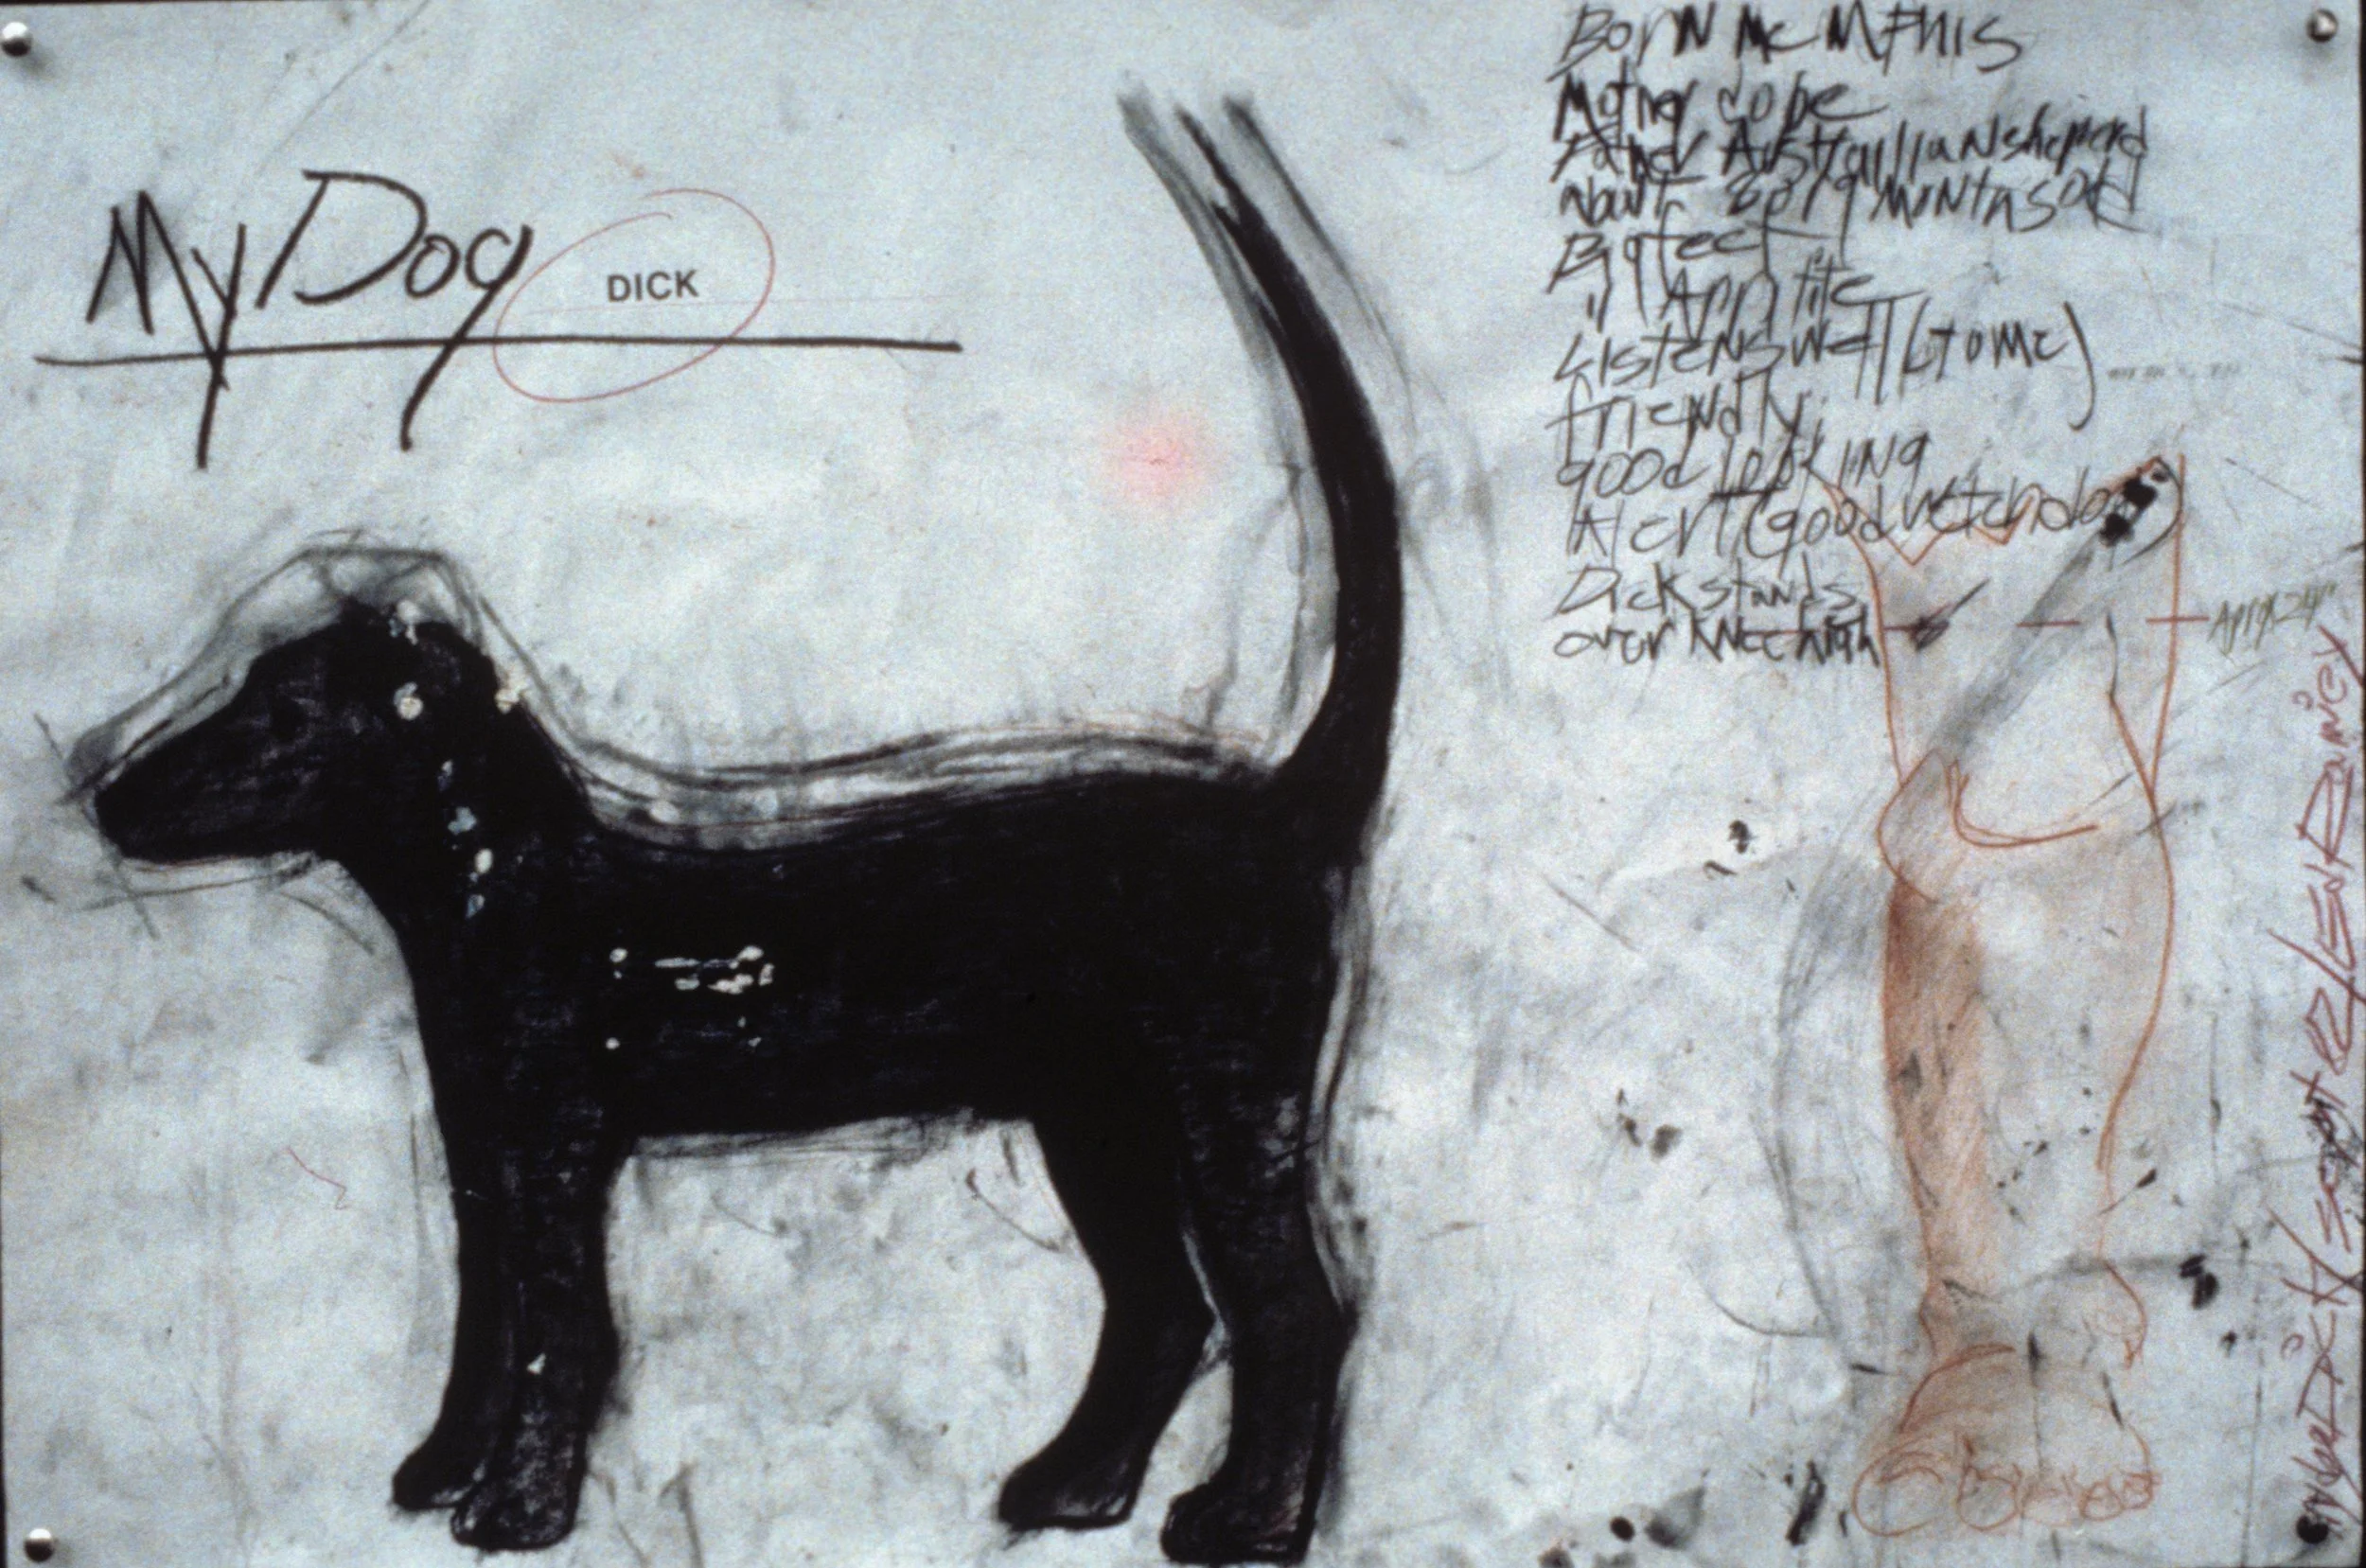 My Dog DICK
Born McMphis
Mother dobe
Father Australian sheperd
about 8 or 9 months old
Big feet
" Appitite
Listens well (to me)
friendly
good looking
Alert (good watchdog
Dick stands
over knee high